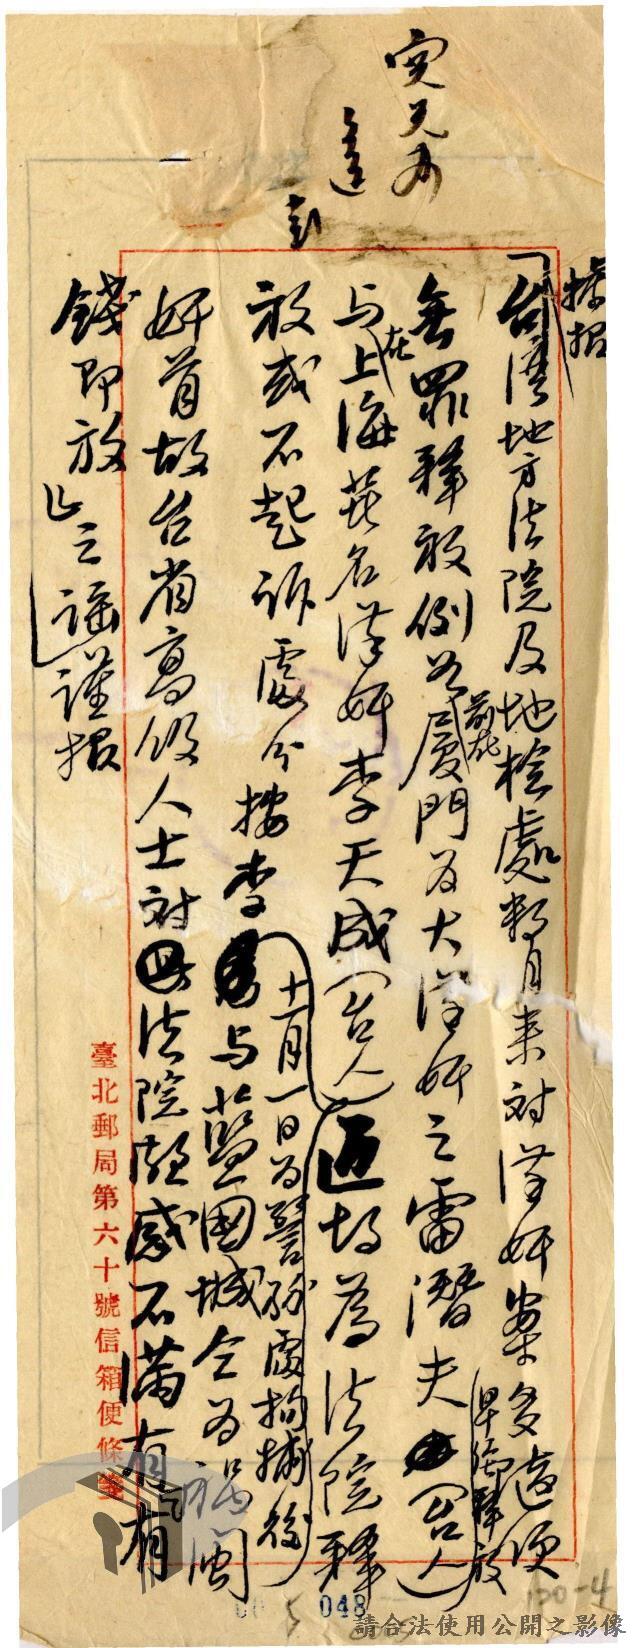 據報
「台灣地方法院及地檢處數月来对漢奸案多適須
無罪釋放例如前在廈門为大漢奸之雷潛夫(台人)早经釋放
与在上海著名漢奸李天成(台人)近均為法院釋
放或不起訴處分按李(十一月一日为警務處拘捕後)
与藍國城合为福闽
奸首故台省高级人士对法院頗感不满有「有
錢即放」之謡謹報
臺北郵局第六十號信箱便條箋
048
130-4
請合法使用公開之影像